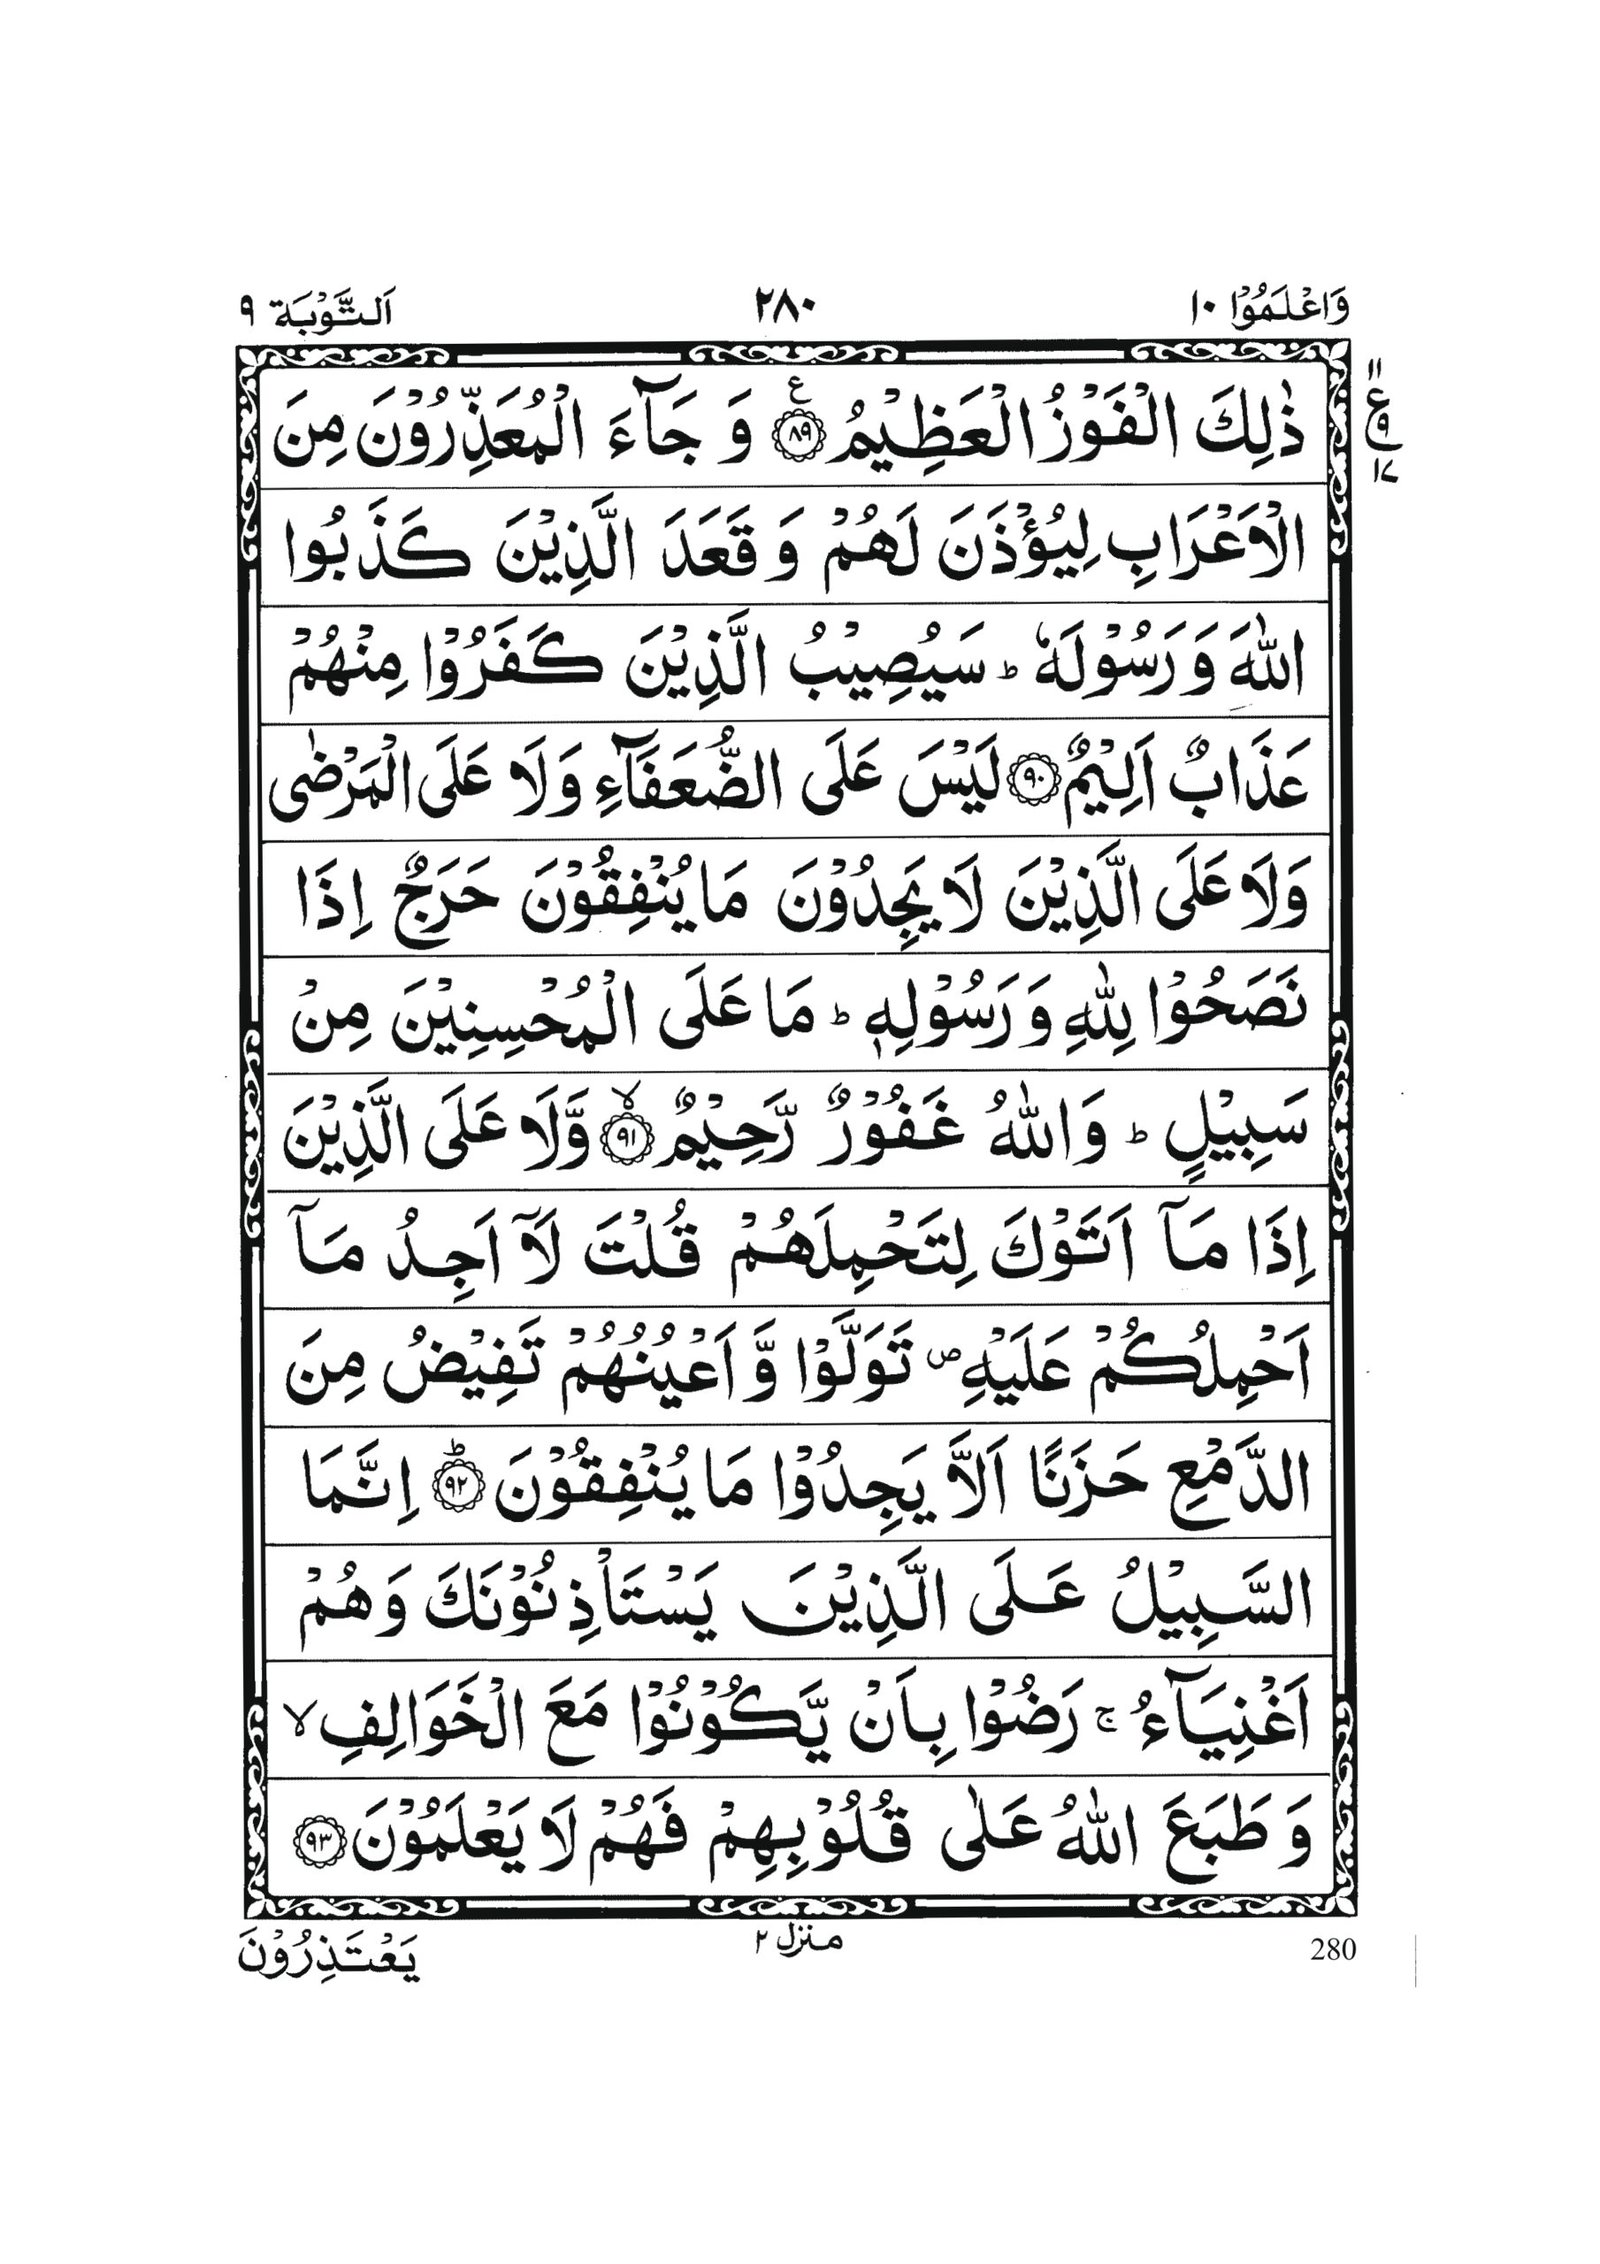 وَاعْلَمُوْٓا ١٠
٢٨٠
اَلتَّوْبَة ٩
ذٰلِكَ الْفَوْزُ الْعَظِيْمُ ﴿٨٩﴾ۧ وَ جَآءَ الْمُعَذِّرُوْنَ مِنَ
١١
ع
٩
١٧
الْاَعْرَابِ لِيُؤْذَنَ لَهُمْ وَ قَعَدَ الَّذِيْنَ كَذَبُوا
اللّٰهَ وَ رَسُوْلَهٗ ؕ سَيُصِيْبُ الَّذِيْنَ كَفَرُوْا مِنْهُمْ
عَذَابٌ اَلِيْمٌ ﴿٩٠﴾ لَيْسَ عَلَى الضُّعَفَآءِ وَلَا عَلَى الْمَرْضٰى
وَلَا عَلَى الَّذِيْنَ لَا يَجِدُوْنَ مَا يُنْفِقُوْنَ حَرَجٌ اِذَا
نَصَحُوْا لِلّٰهِ وَ رَسُوْلِهٖ ؕ مَا عَلَى الْمُحْسِنِيْنَ مِنْ
سَبِيْلٍ ؕ وَاللّٰهُ غَفُوْرٌ رَّحِيْمٌ ﴿٩١﴾ۙ وَّلَا عَلَى الَّذِيْنَ
اِذَا مَآ اَتَوْكَ لِتَحْمِلَهُمْ قُلْتَ لَآ اَجِدُ مَآ
اَحْمِلُكُمْ عَلَيْهِ ۪ تَوَلَّوْا وَّ اَعْيُنُهُمْ تَفِيْضُ مِنَ
الدَّمْعِ حَزَنًا اَلَّا يَجِدُوْا مَا يُنْفِقُوْنَ ﴿٩٢﴾ؕ اِنَّمَا
السَّبِيْلُ عَلَى الَّذِيْنَ يَسْتَاْذِنُوْنَكَ وَهُمْ
اَغْنِيَآءُ ۚ رَضُوْا بِاَنْ يَّكُوْنُوْا مَعَ الْخَوَالِفِ ۙ
وَ طَبَعَ اللّٰهُ عَلٰى قُلُوْبِهِمْ فَهُمْ لَا يَعْلَمُوْنَ ﴿٩٣﴾
280
منزل ٢
يَعْتَذِرُوْنَ